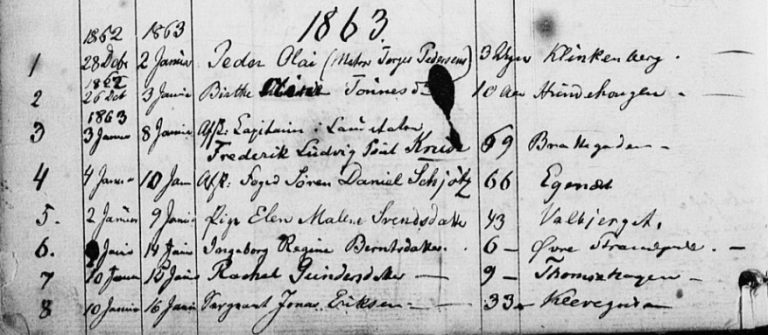 1863.
1862 1863
1 28 Dcbr 2 Januar Peder Olai (Matros Torges Pedersens) 3 Klinkenberg.
1862
2 26 Oct 3 Janu Birthe Tönnesd 10 Aar Hundehougen -
1863
3 3 Janua 8 Janua Afsk: Capitain i
Frederik Ludvig Poul Kruse 69 Brattegaden -
4 4 Janu 10 Jan Afsk: Foged Sören Daniel Schjøtz 66 Egenæs
5. 2 Januar 9 Janua Pige Elen Malene Svendsdatter 43 Valbjerget.
6. Janu 14 Janu Ingeborg Regine Berntsdatter. 6 - Øvre Strandgade. -
7 10 Janua 15 Janu Rachel Gundersdatter - 9 - Thomsehagen -
8 10 Janua 16 Janu Sergeant Jonas Eriksen - 33